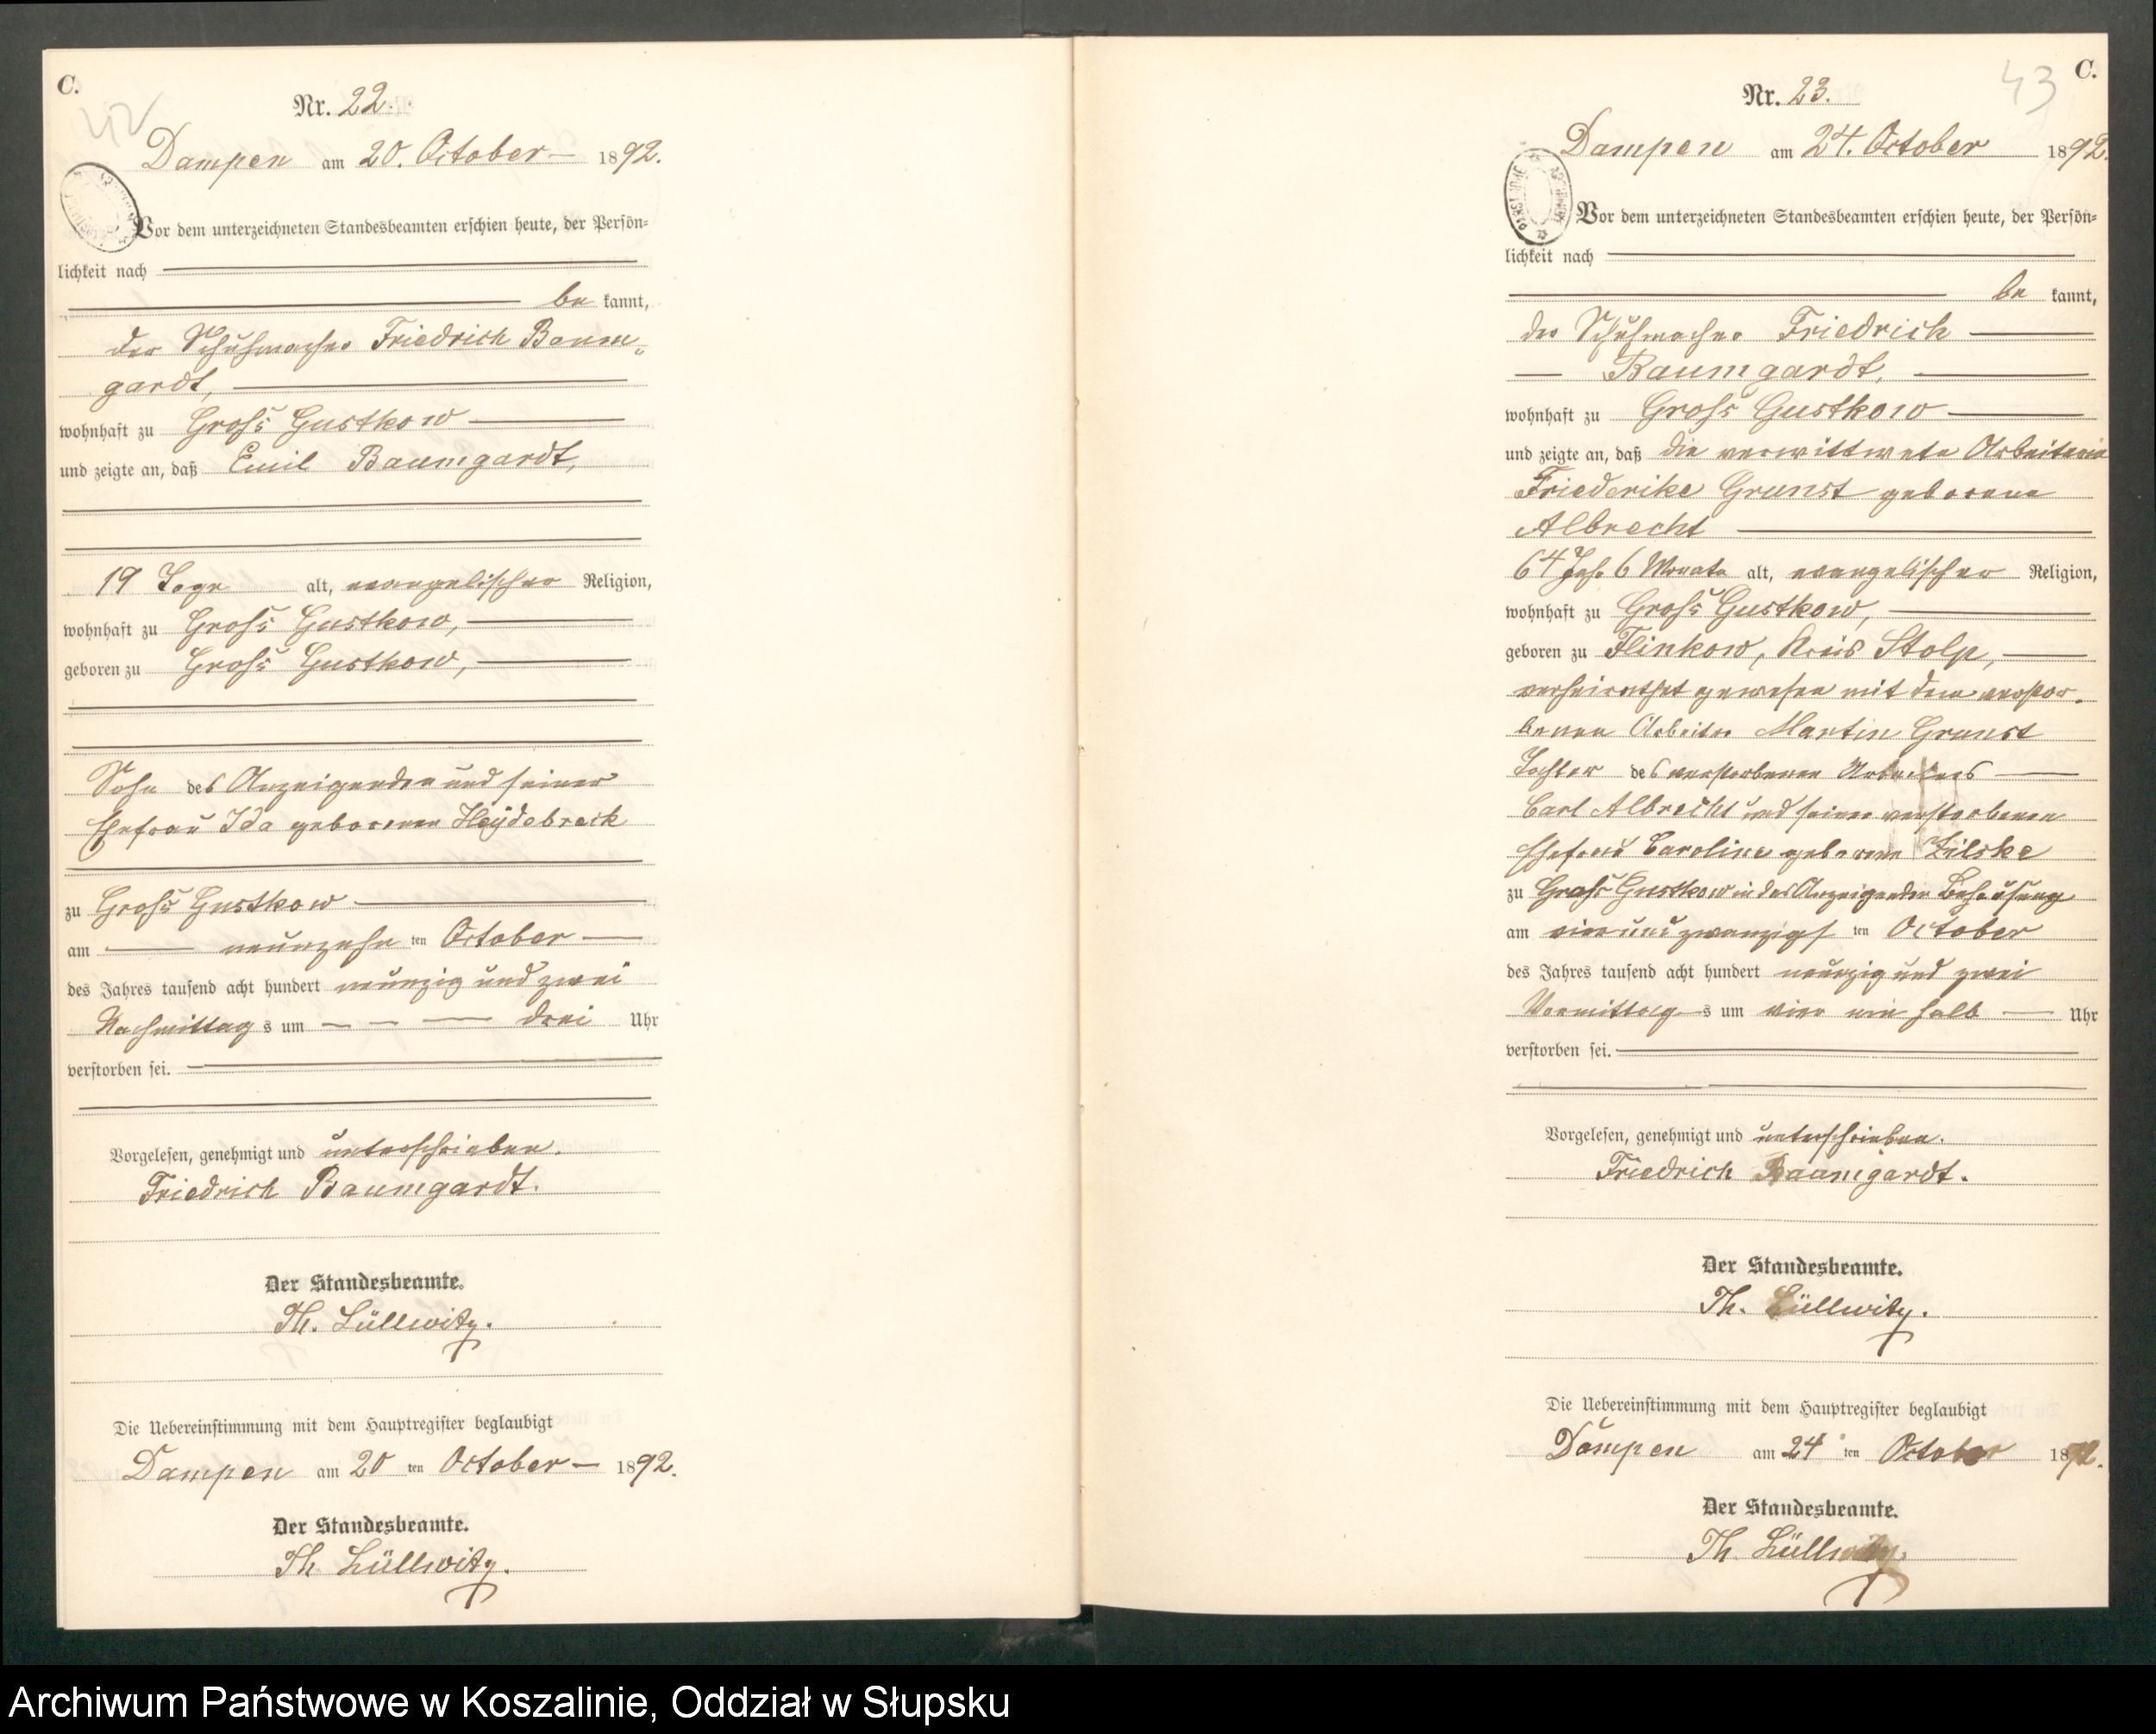 C.
42
Nr. 22.
Dampen am 20. October 1892.
Vor dem unterzeichneten Standesbeamten erschien heute, der Persön=
lichkeit nach
be kannt,
der Schuhmacher Friedrich Baum„
gardt,
wohnhaft zu Groß Gustkow
und zeigte an, daß Emil Baumgardt,
19 Tage alt, evangelischer Religion,
wohnhaft zu Groß Gustkow,
geboren zu Groß Gustkow,
Sohn des Anzeigenden und seiner
Ehefrau Ida geborenen Heydebreck
zu Groß Gustkow
am neunzehn ten October
des Jahres tausend acht hundert neunzig und zwei
Nachmittag s um drei Uhr
verstorben sei.
Vorgelesen, genehmigt und unterschrieben.
Friedrich Baumgardt.
Der Standesbeamte.
Th. Lüllwitz.
Die Uebereinstimmung mit dem Hauptregister beglaubigt
Dampen am 20 ten October 1892.
Der Standesbeamte.
Th. Lüllwitz.
43 C.
Nr. 23.
Dampen am 24. October 1892.
Vor dem unterzeichneten Standesbeamten erschien heute, der Persön=
lichkeit nach
be kannt,
der Schuhmacher Friedrich
Baumgardt,
wohnhaft zu Groß Gustkow
und zeigte an, daß die verwittwete Arbeiterin
Friederike Grunst geborene
Albrecht
64 Jahr 6 Monate alt, evangelischer Religion,
wohnhaft zu Groß Gustkow,
geboren zu Flinkow, Kreis Stolp,
verheirathet gewesen mit dem verstor„
benen Arbeiter Martin Grunst
Tochter des verstorbenen Arbeiters
Carl Albrecht und seiner verstorbenen
Ehefrau Caroline geborene Zilske
zu Groß Gustkow in des Anzeigenden Behausung
am vierundzwanzigs ten October
des Jahres tausend acht hundert neunzig und zwei
Vormittag s um vier ein halb Uhr
verstorben sei.
Vorgelesen, genehmigt und unterschrieben.
Friedrich Baumgardt.
Der Standesbeamte.
Th. Lüllwitz.
Die Uebereinstimmung mit dem Hauptregister beglaubigt
Dampen am 24 ten October 1892.
Der Standesbeamte.
Th. Lüllwitz.
Archiwum Państwowe w Koszalinie, Oddział w Słupsku